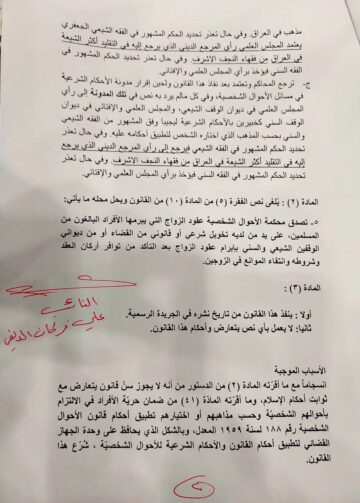 مذهب في العراق. وفي حال تعذر تحديد الحكم المشهور في الفقه الشيعي الجعفري
يعتمد المجلس العلمي رأي المرجع الديني الذي يرجع إليه في التقليد أكثر الشيعة
في العراق من فقهاء النجف الاشرف. وفي حال تعذر تحديد الحكم المشهور في
الفقه السني فيؤخذ برأي المجلس العلمي والإفتائي.
ج- ترجع المحاكم وتعتمد بعد نفاذ هذا القانون ولحين إقرار مدونة الأحكام الشرعية
في مسائل الأحوال الشخصية، وفي كل مالم يرد به نص في تلك المدونة إلى رأي
المجلس العلمي في ديوان الوقف الشيعي، والمجلس العلمي والإفتائي في ديوان
الوقف السني كخبيرين بالأحكام الشرعية ليجيبا وفق المشهور من الفقه الشيعي
والسني بحسب المذهب الذي اختاره الشخص لتطبيق أحكامه عليه. وفي حال تعذر
تحديد الحكم المشهور في الفقه الشيعي فيرجع إلى رأي المرجع الديني الذي يرجع
إليه في التقليد أكثر الشيعة في العراق من فقهاء النجف الاشرف. وفي حال تعذر
تحديد الحكم المشهور في الفقه السني فيؤخذ برأي المجلس العلمي والإفتائي.
المادة (٢): يُلغى نص الفقرة (٥) من المادة (١٠) من القانون ويحل محله ما يأتي:
٥- تصدق محكمة الأحوال الشخصية عقود الزواج التي يبرمها الأفراد البالغون من
المسلمين، على يد من لديه تخويل شرعي أو قانوني من القضاء أو من ديواني
الوقفين الشيعي والسني بإبرام عقود الزواج بعد التأكد من توافر أركان العقد
وشروطه وانتفاء الموانع في الزوجين.
المادة (٣):
أولا : ينفذ هذا القانون من تاريخ نشره في الجريدة الرسمية.
ثانيا: لا يعمل بأي نص يتعارض وأحكام هذا القانون.
النائب
الأسباب الموجبة
انسجاماً مع ما أقرته المادة (٢) من الدستور من أنه لا يجوز سنّ قانون يتعارض مع
ثوابت أحكام الإسلام، وما أقرّته المادة (٤١) من ضمان حريّة الأفراد في الالتزام
بأحوالهم الشخصيّة وحسب مذاهبهم أو اختيارهم تطبيق أحكام قانون الأحوال
الشخصية رقم ١٨٨ لسنة ١٩٥٩ المعدل، وبالشكل الذي يحافظ على وحدة الجهاز
القضائي لتطبيق أحكام القانون والأحكام الشرعية للأحوال الشخصيّة ، شُرّع هذا
القانون.